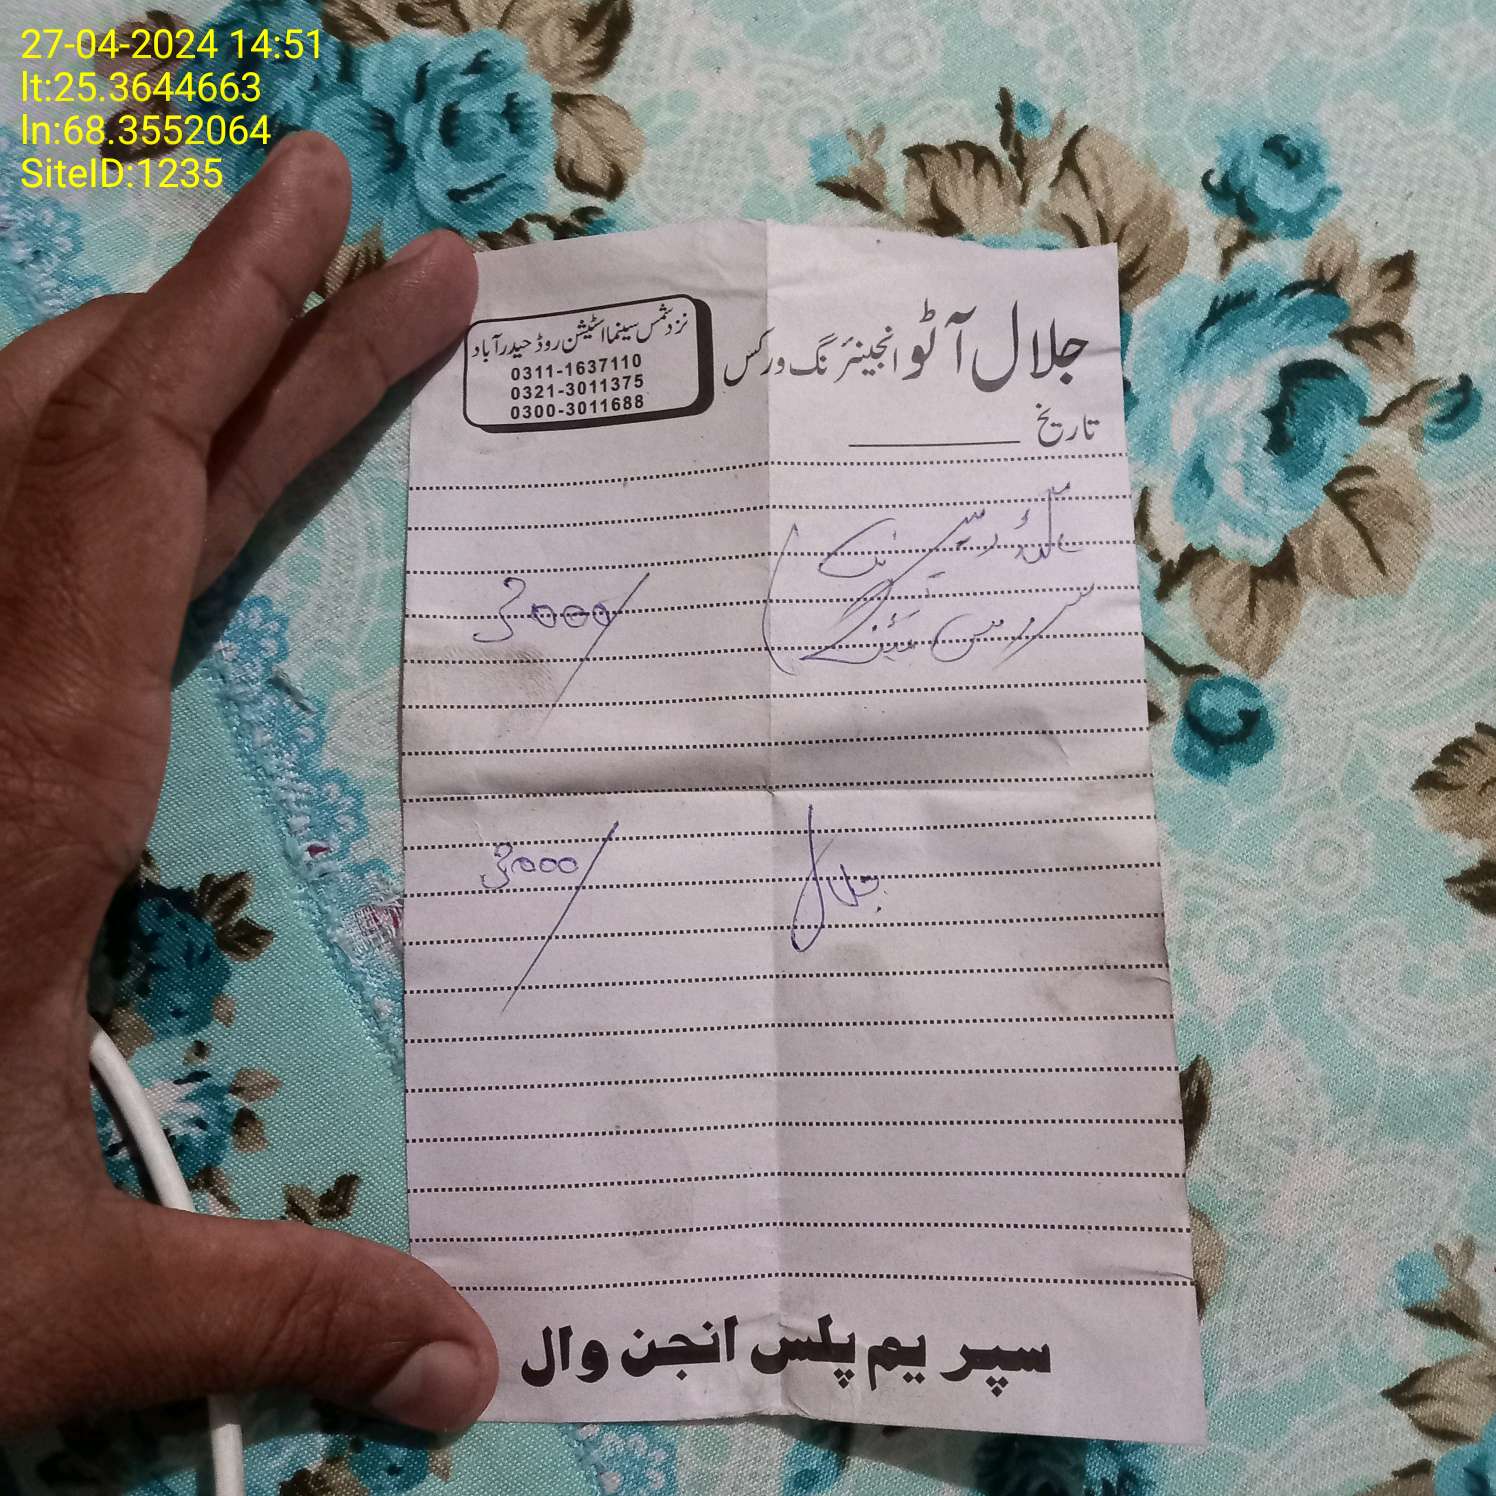 27-04-2024 14:51
lt:25.3644663
ln:68.3552064
SiteID:1235
جلال آٹو انجینئرنگ ورکس
نزد شمس سینما اسٹیشن روڈ حیدرآباد
0311-1637110
0321-3011375
0300-3011688
تاریخ
3000/
سروس
3000/
جلال
سپریم پلس انجن وال